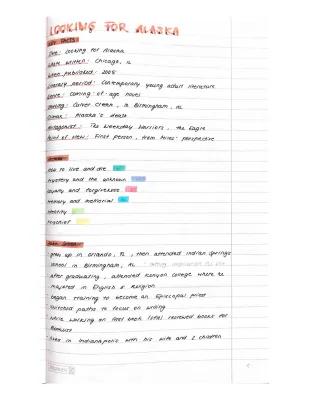 LOOKING FOR ALASKA
KEY FACTS
Title: Looking for Alaska
where written: Chicago, IL
when published: 2005
Literary period: Contemporary young adult literature
Genre: Coming-of-age novel
Setting: Culver Creek, in Birmingham, AL
Climax: Alaska's death
Antagonist: The Weekday Warriors, the Eagle
Point of View: First person, from Miles' perspective
how to live and die
mystery and the unknown
loyalty and forgiveness
memory and memorial
identity
mischief
John Green
grew up in Orlando, FL, then attended Indian Springs
school in Birmingham, AL
After graduating, attended Kenyon College where he
majored in English & Religion
began training to become an Episcopal priest
switched paths to focus on writing
while working on first book, Green reviewed books for
Booklist
lives in Indianapolis with his wife and 2 children